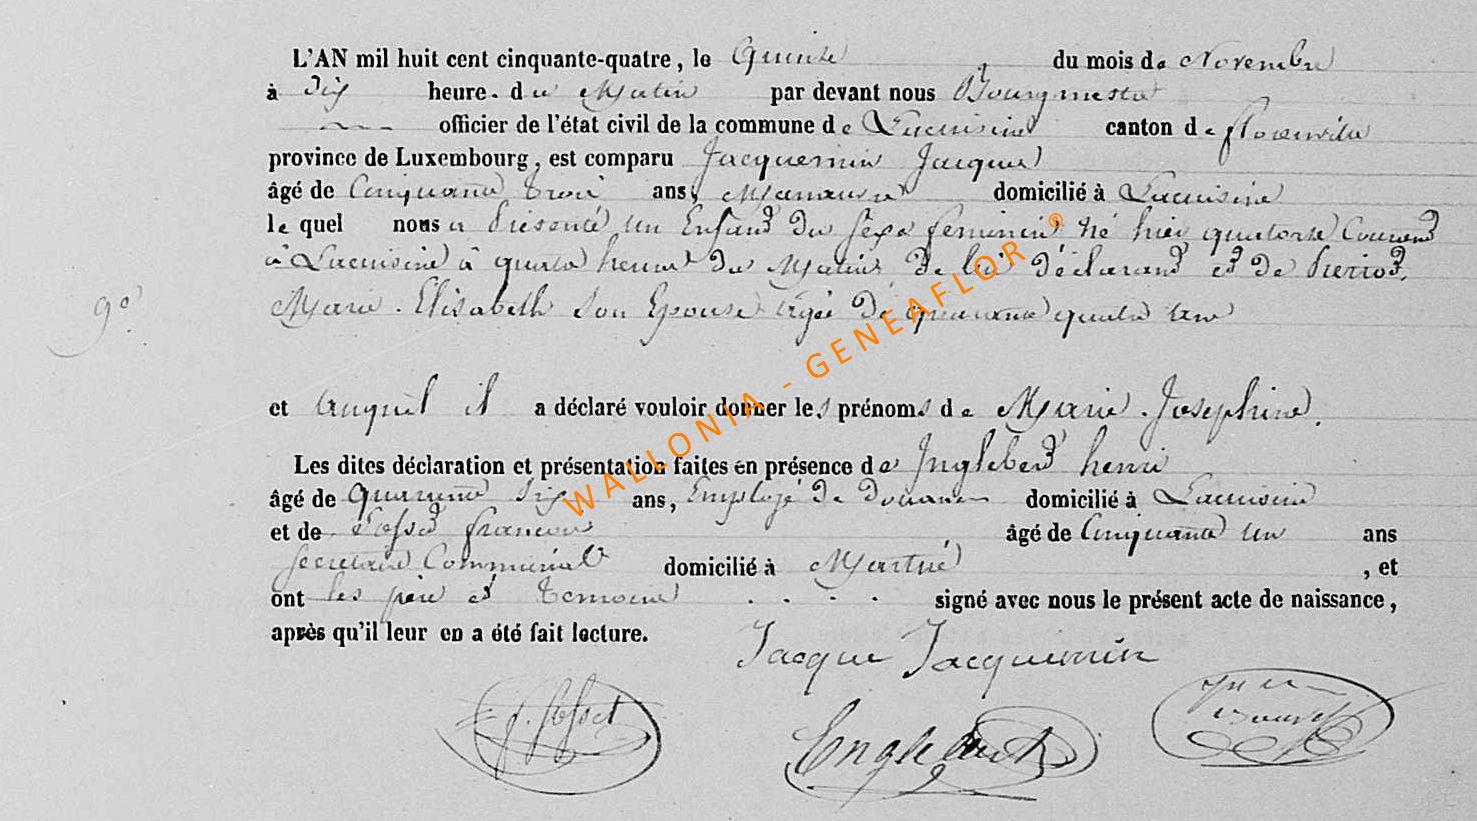 L'AN mil huit cent cinquante-quatre, le Quinze du mois de Novembre
à Dix heure. du Matin par devant nous Bourgmestre
officier de l'état civil de la commune de Lacuisine canton de florenville
province de Luxembourg, est comparu Jacquemin Jacque
âgé de Cinquante trois ans, Manœuvre domicilié à Lacuisine
le quel nous a Présenté un Enfant du sexe feminin né hier quatorze Courend
à Lacuisine à quatre heure du Matin de lui déclarand et de Pieriod,
9e
Marie. Elisabeth Son Epouse agée de quarante quatre ans
et auquel il a déclaré vouloir donner les prénoms de Marie. Josephine.
Les dites déclaration et présentation faites en présence de Inglebert henri
âgé de Quarante Six ans, Employé de Douanes domicilié à Lacuisine
et de françois âgé de Cinquante un ans
secretaire Communal domicilié à Martué, et
ont les père et temoins . . . . signé avec nous le présent acte de naissance,
après qu'il leur en a été fait lecture.
Jacque Jacquemin
Englebert
WALLONIA - GENEAFLOR ©